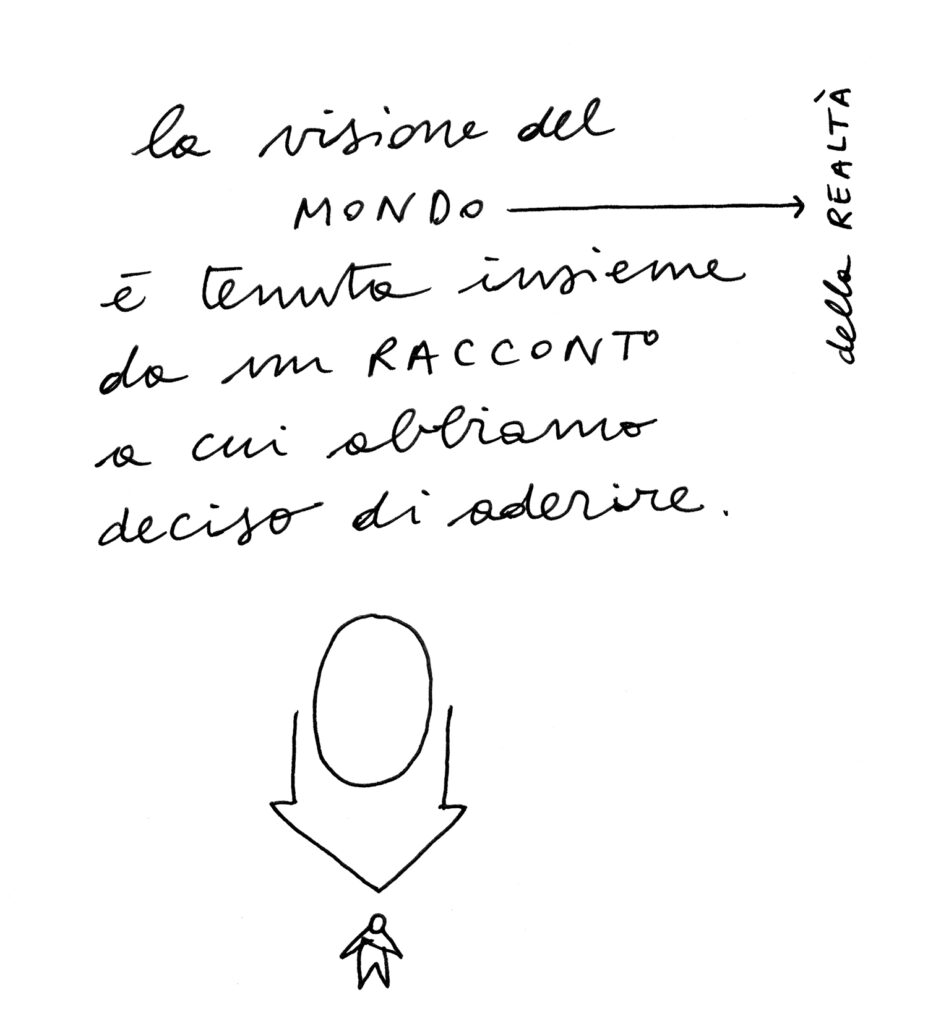 la visione del
MONDO
della REALTÀ
è tenuta insieme
da un RACCONTO
a cui abbiamo
deciso di aderire.